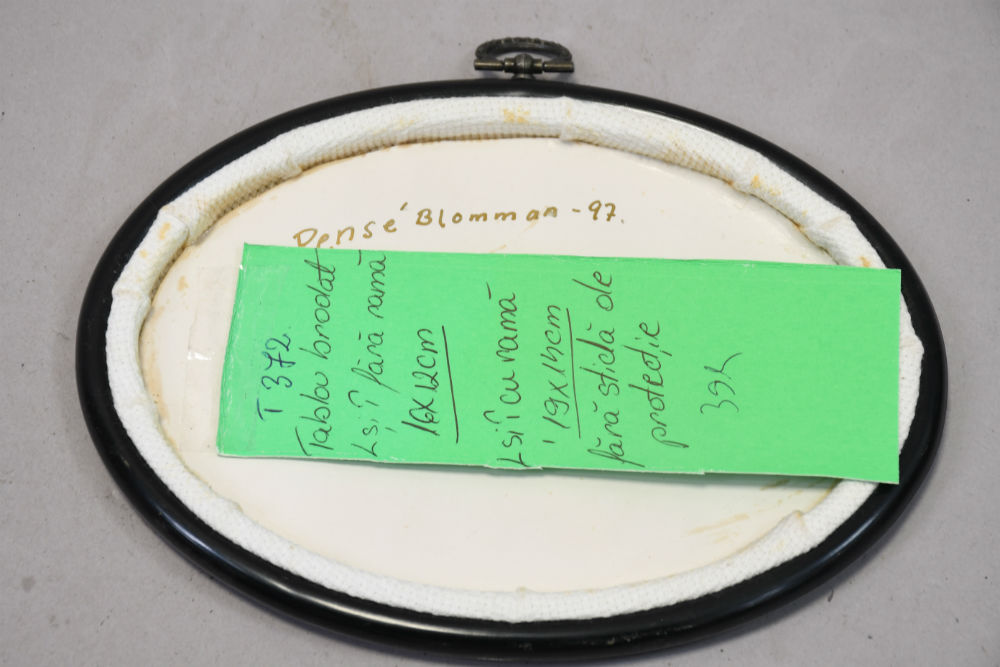 Densé Blomman - 97.
T 372.
Tablou brodat
L și Î fără ramă
16x12cm
L și Î cu ramă
19x14cm
fără sticlă de
protecție